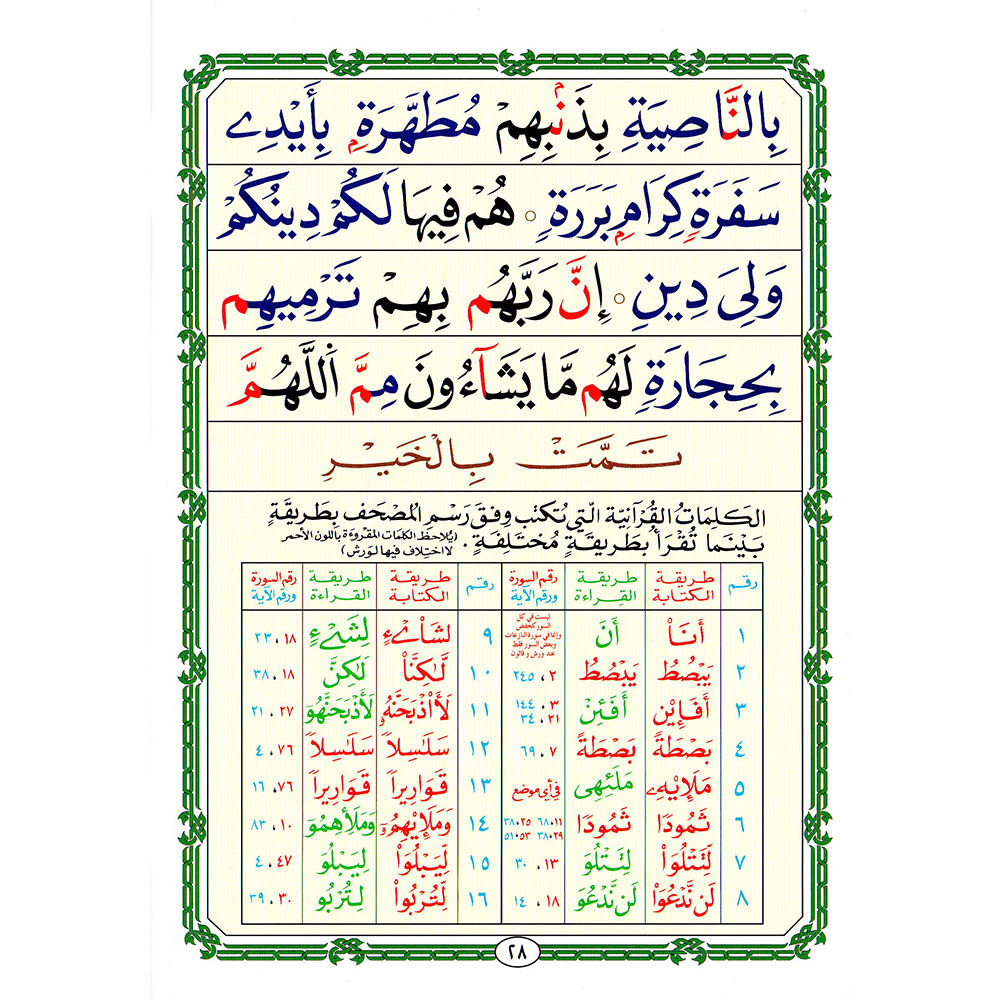 بِالنَّاصِيَةِ بِذَنۢبِهِمْ مُطَهَّرَةٍ بِأَيْدِے
سَفَرَةٍ كِرَامٍ بَرَرَةٍ ۰ هُمْ فِيهَا لَكُمْ دِينُكُمْ
وَلِىَ دِينِ ۰ إِنَّ رَبَّهُم بِهِمْ تَرْمِيهِم
بِحِجَارَةٍ لَهُم مَّا يَشَآءُونَ مِمَّ اَللَّهُمَّ
تَمَّتْ بِالْخَيْرِ
الكَلِمَاتُ القُرْآنِيَّة الَّتِي تُكتَبُ وِفقَ رَسْمِ المُصْحَفِ بِطَرِيقَةٍ
بَيْنَمَا تُقْرَأُ بِطَرِيقَةٍ مُخْتَلِفَةٍ . (يُلاحظ الكلمات المقروءة باللون الأحمر
لا اختلاف فيها لورش)
رقم طريقة الكتابة طريقة القراءة رقم السورة ورقم الآية رقم طريقة الكتابة طريقة القراءة رقم السورة ورقم الآية
١ أَنَا۠ أَنَ ليست في كل السور كحفص وإنما في سورة النازعات وبعض السور فقط عند ورش و قالون ٩ لِشَاْےْءٍ لِشَےْءٍ ١٨، ٢٣
٢ يَبْصُطُ يَبْصُطُ ٢، ٢٤٥ ١٠ لَّٰكِنَّا۠ لَٰكِنَّ ١٨، ٣٨
٣ أَفَإِيْن أَفَئِنْ ٣، ١٤٤ ٢١، ٣٤ ١١ لَأَاْذْبَحَنَّهُۥ لَأَذْبَحَنَّهُو ٢٧، ٢١
٤ بَصْطَةً بَصْطَةً ٧، ٦٩ ١٢ سَلَٰسِلاً سَلَٰسِلاً ٧٦، ٤
٥ مَلَإِيْهِۦ مَلَئِهِى في أي موضع ١٣ قَوَارِيراً قَوَارِيراً ٧٦، ١٦
٦ ثَمُودَا۠ ثَمُودَا ١١،٦٨ ٢٥،٣٨ ٢٩،٣٨ ٥٣،٥١ ١٤ وَمَلَإِيْهِمُۥٓ وَمَلَأهِمُوٓ ١٠، ٨٣
٧ لِّتَتْلُوَاْ لِتَتْلُوَ ١٣، ٣٠ ١٥ لِّيَبْلُوَاْ لِيَبْلُوَ ٤٧، ٤
٨ لَن نَّدْعُوَاْ لَن نَّدْعُوَ ١٨، ١٤ ١٦ لِّتُرْبُواْ لِتُرْبُو ٣٠، ٣٩
٢٨